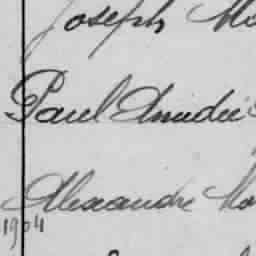 Joseph Mo
Paul Amédée
Alexandre Mo
1904